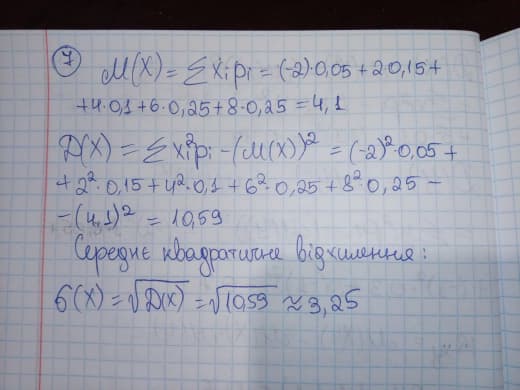 7
M(X) = ∑ xᵢpᵢ = (-2)·0,05 + 2·0,15 +
+ 4·0,1 + 6·0,25 + 8·0,25 = 4,1
D(X) = ∑ xᵢ²pᵢ - (M(X))² = (-2)²·0,05 +
+ 2²·0,15 + 4²·0,1 + 6²·0,25 + 8²·0,25 -
- (4,1)² = 10,59
Середнє квадратичне відхилення:
σ(X) = √D(X) = √10,59 ≈ 3,25